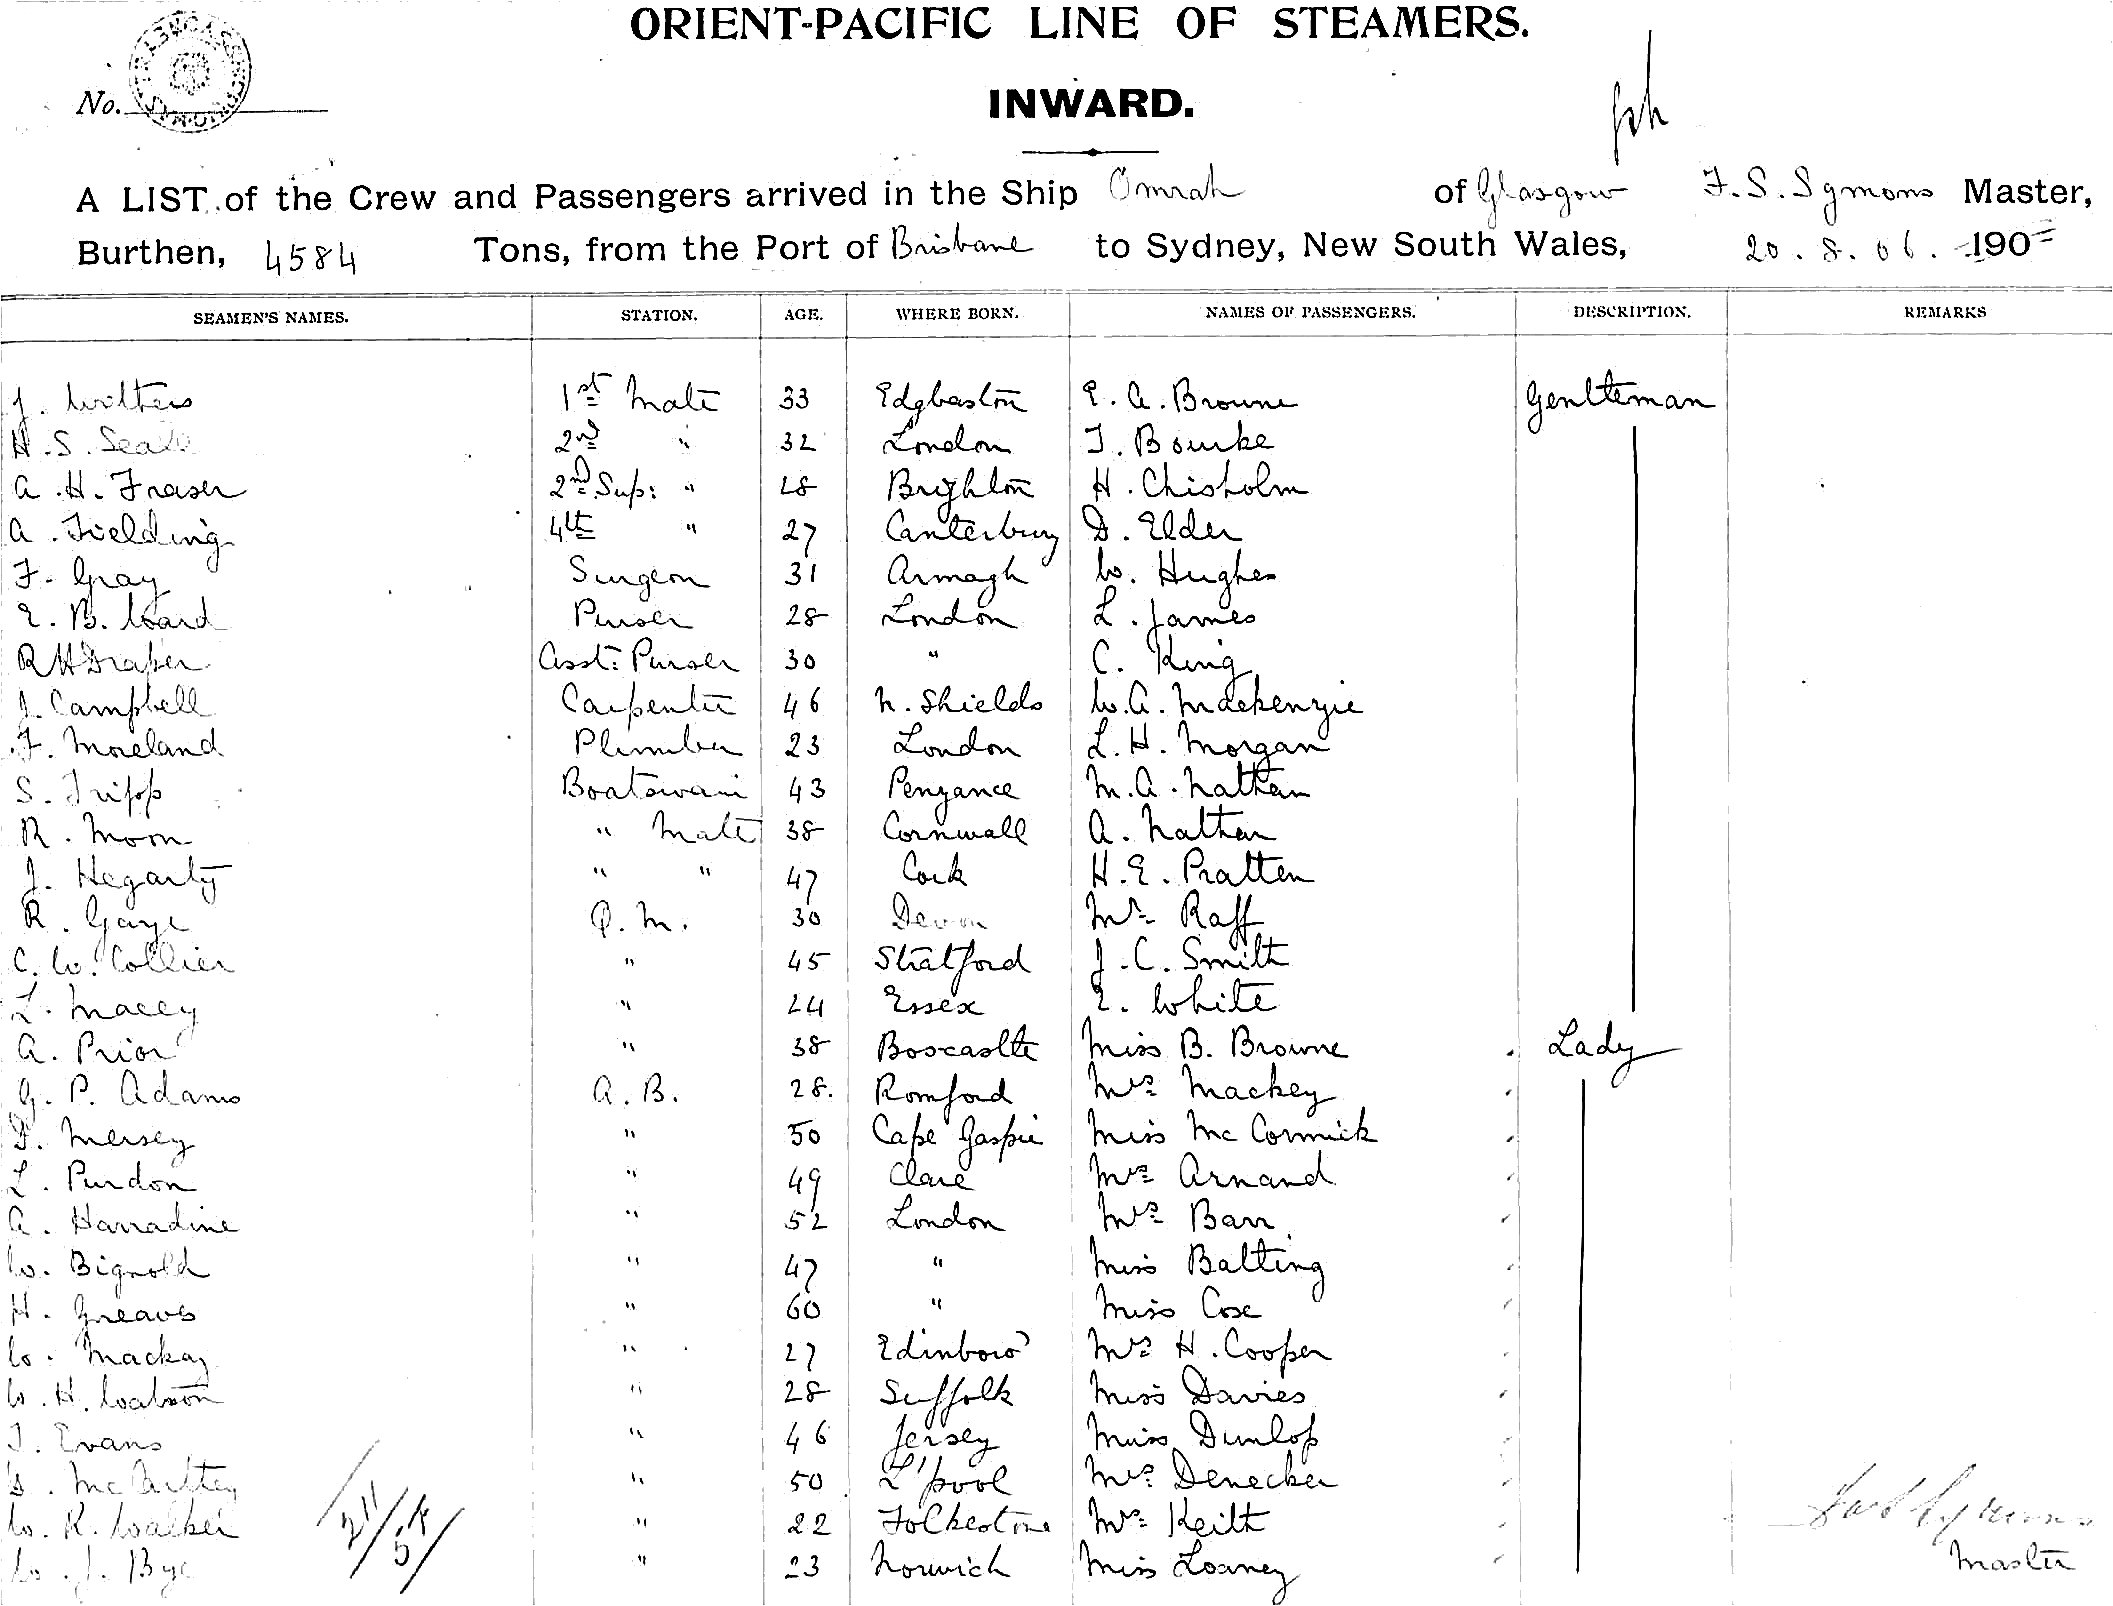 ORIENT-PACIFIC LINE OF STEAMERS.
No.
INWARD.
A LIST of the Crew and Passengers arrived in the Ship Omrah of Glasgow F. S. Symons Master,
Burthen, 4584 Tons, from the Port of Brisbane to Sydney, New South Wales, 20.8.06. 190
SEAMEN'S NAMES. STATION. AGE. WHERE BORN. NAMES OF PASSENGERS. DESCRIPTION. REMARKS
J. Withers 1st Mate 33 Edgbaston E. A. Browne Gentleman
H. S. Seale 2nd " 32 London T. Bourke
A. H. Fraser 2nd Sup: " 28 Brighton H. Chisholm
A. Fielding 4th " 27 Canterbury D. Elder
F. Gray Surgeon 31 Armagh W. Hughes
E. B. Ward Purser 28 London L. James
R H Draper Asst: Purser 30 " C. King
J. Campbell Carpenter 46 N. Shields W. A. Mackenzie
F. Moreland Plumber 23 London L. H. Morgan
S. Tripp Boatswain 43 Penzance M. A. Nathan
R. Moon " Mate 38 Cornwall A. Nathan
J. Hegarty " " 47 Cork H. E. Pratten
R. Gaye Q. M. 30 Devon Mr Raff
C. W. Collier " 45 Stratford J. C. Smith
L. Macey " 24 Essex E. White
A. Prior " 38 Boscastle Miss B. Browne Lady
G. P. Adams A. B. 28. Romford Mrs Mackey
D. Mersey " 50 Cape Gaspie Miss McCormick
L. Purdon " 49 Clare Mrs Arnand
A. Harradine " 52 London Mrs Barr
W. Bignold " 47 " Miss Balting
H. Greaves " 60 " Miss Cox
W. Mackay " 27 Edinboro' Mrs H. Cooper
W. H. Watson " 28 Suffolk Miss Davies
T. Evans " 46 Jersey Miss Dunlop
McArthey " 50 L'pool Mrs Denecker
W. R. Walker " 22 Folkestone Mrs Keith
W. J. Bye " 23 Norwich Miss Loaney
Master